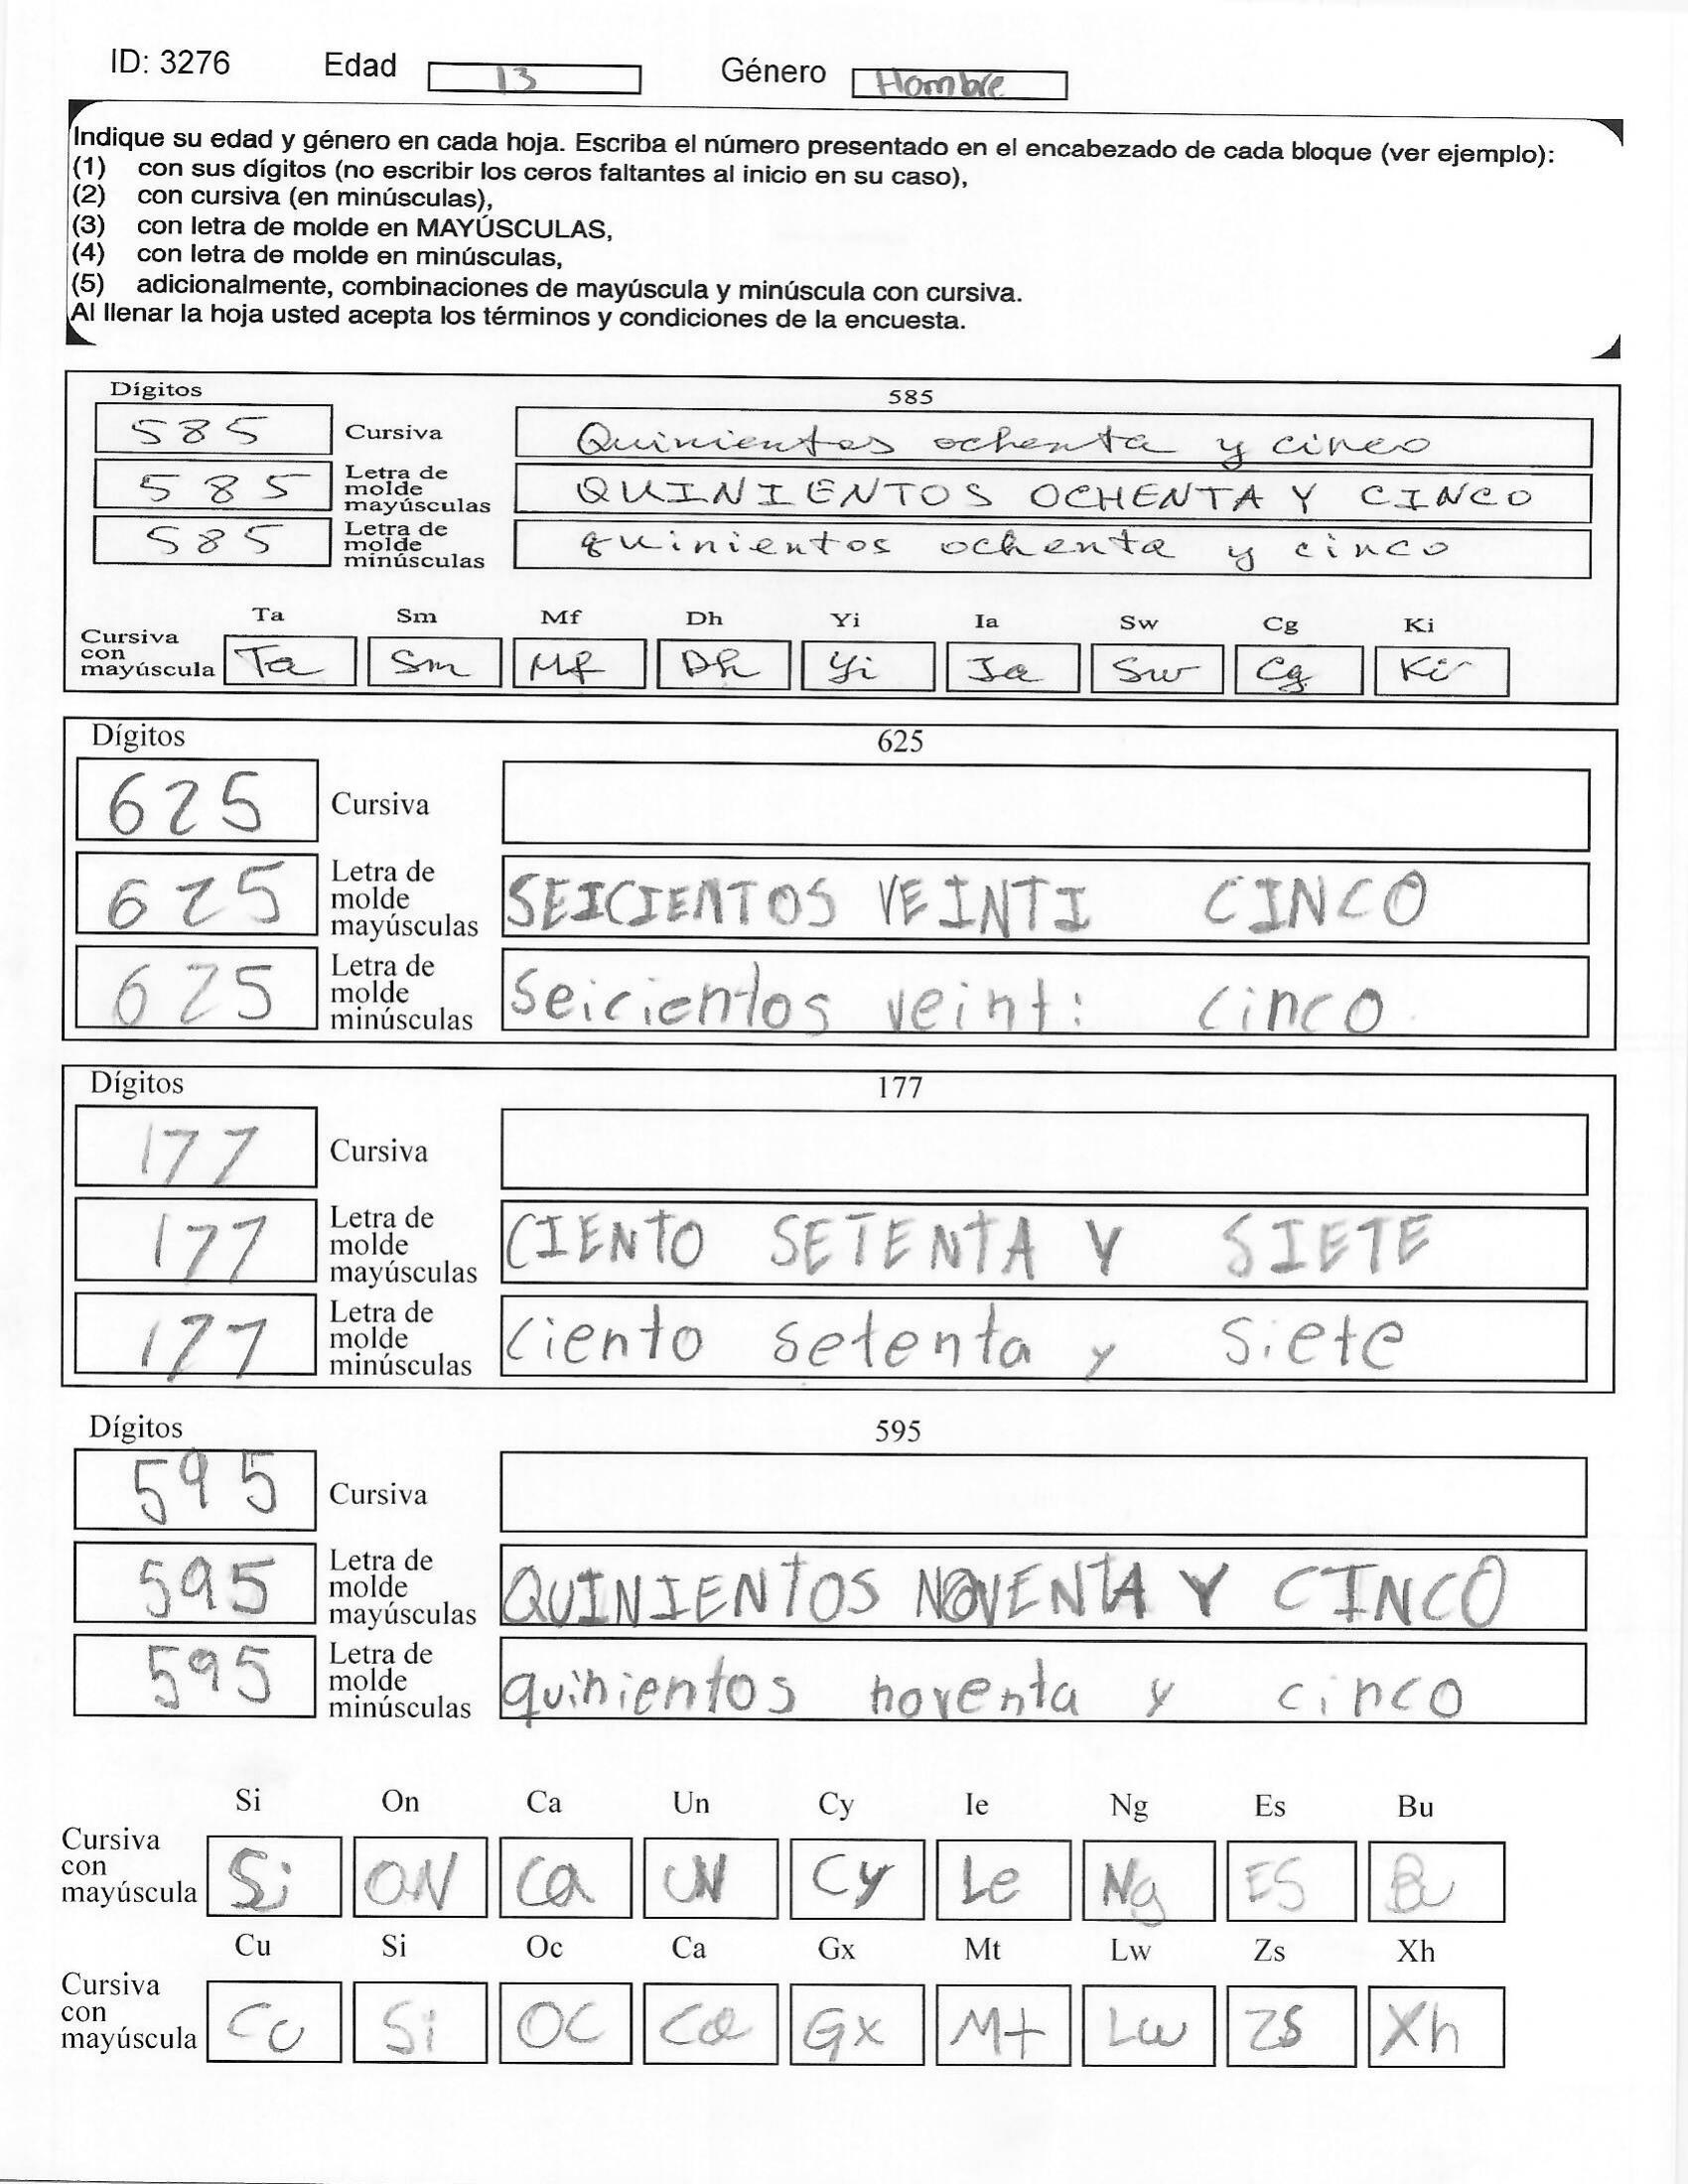 ID: 3276 Edad 13 Género Hombre
Indique su edad y género en cada hoja. Escriba el número presentado en el encabezado de cada bloque (ver ejemplo):
(1) con sus dígitos (no escribir los ceros faltantes al inicio en su caso),
(2) con cursiva (en minúsculas),
(3) con letra de molde en MAYÚSCULAS,
(4) con letra de molde en minúsculas,
(5) adicionalmente, combinaciones de mayúscula y minúscula con cursiva.
Al llenar la hoja usted acepta los términos y condiciones de la encuesta.
Dígitos 585
585 Cursiva Quinientos ochenta y cinco
585 Letra de molde mayúsculas QUINIENTOS OCHENTA Y CINCO
585 Letra de molde minúsculas quinientos ochenta y cinco
Ta Sm Mf Dh Yi Ia Sw Cg Ki
Cursiva con mayúscula Ta Sm Mf Dh Yi Ia Sw Cg Ki
Dígitos 625
625 Cursiva
625 Letra de molde mayúsculas SEICIENTOS VEINTI CINCO
625 Letra de molde minúsculas Seicientos veinti cinco
Dígitos 177
177 Cursiva
177 Letra de molde mayúsculas CIENTO SETENTA Y SIETE
177 Letra de molde minúsculas ciento setenta y siete
Dígitos 595
595 Cursiva
595 Letra de molde mayúsculas QUINIENTOS NOVENTA Y CINCO
595 Letra de molde minúsculas quinientos noventa y cinco
Si On Ca Un Cy Ie Ng Es Bu
Cursiva con mayúscula Si ON Ca UN Cy Le Ng ES Bu
Cu Si Oc Ca Gx Mt Lw Zs Xh
Cursiva con mayúscula Cu Si OC Ca Gx Mt Lw Zs Xh